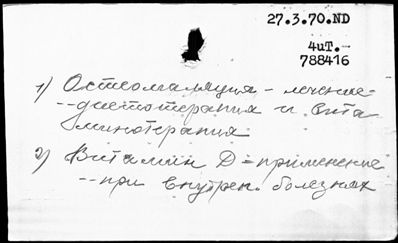 27.3.70.ND
4uT.
788416
1) Остеомаляция - лечение -
-- диетотерапия и вита
минотерапия
2) Витамин D = применение
-- при внутрен. болезнях